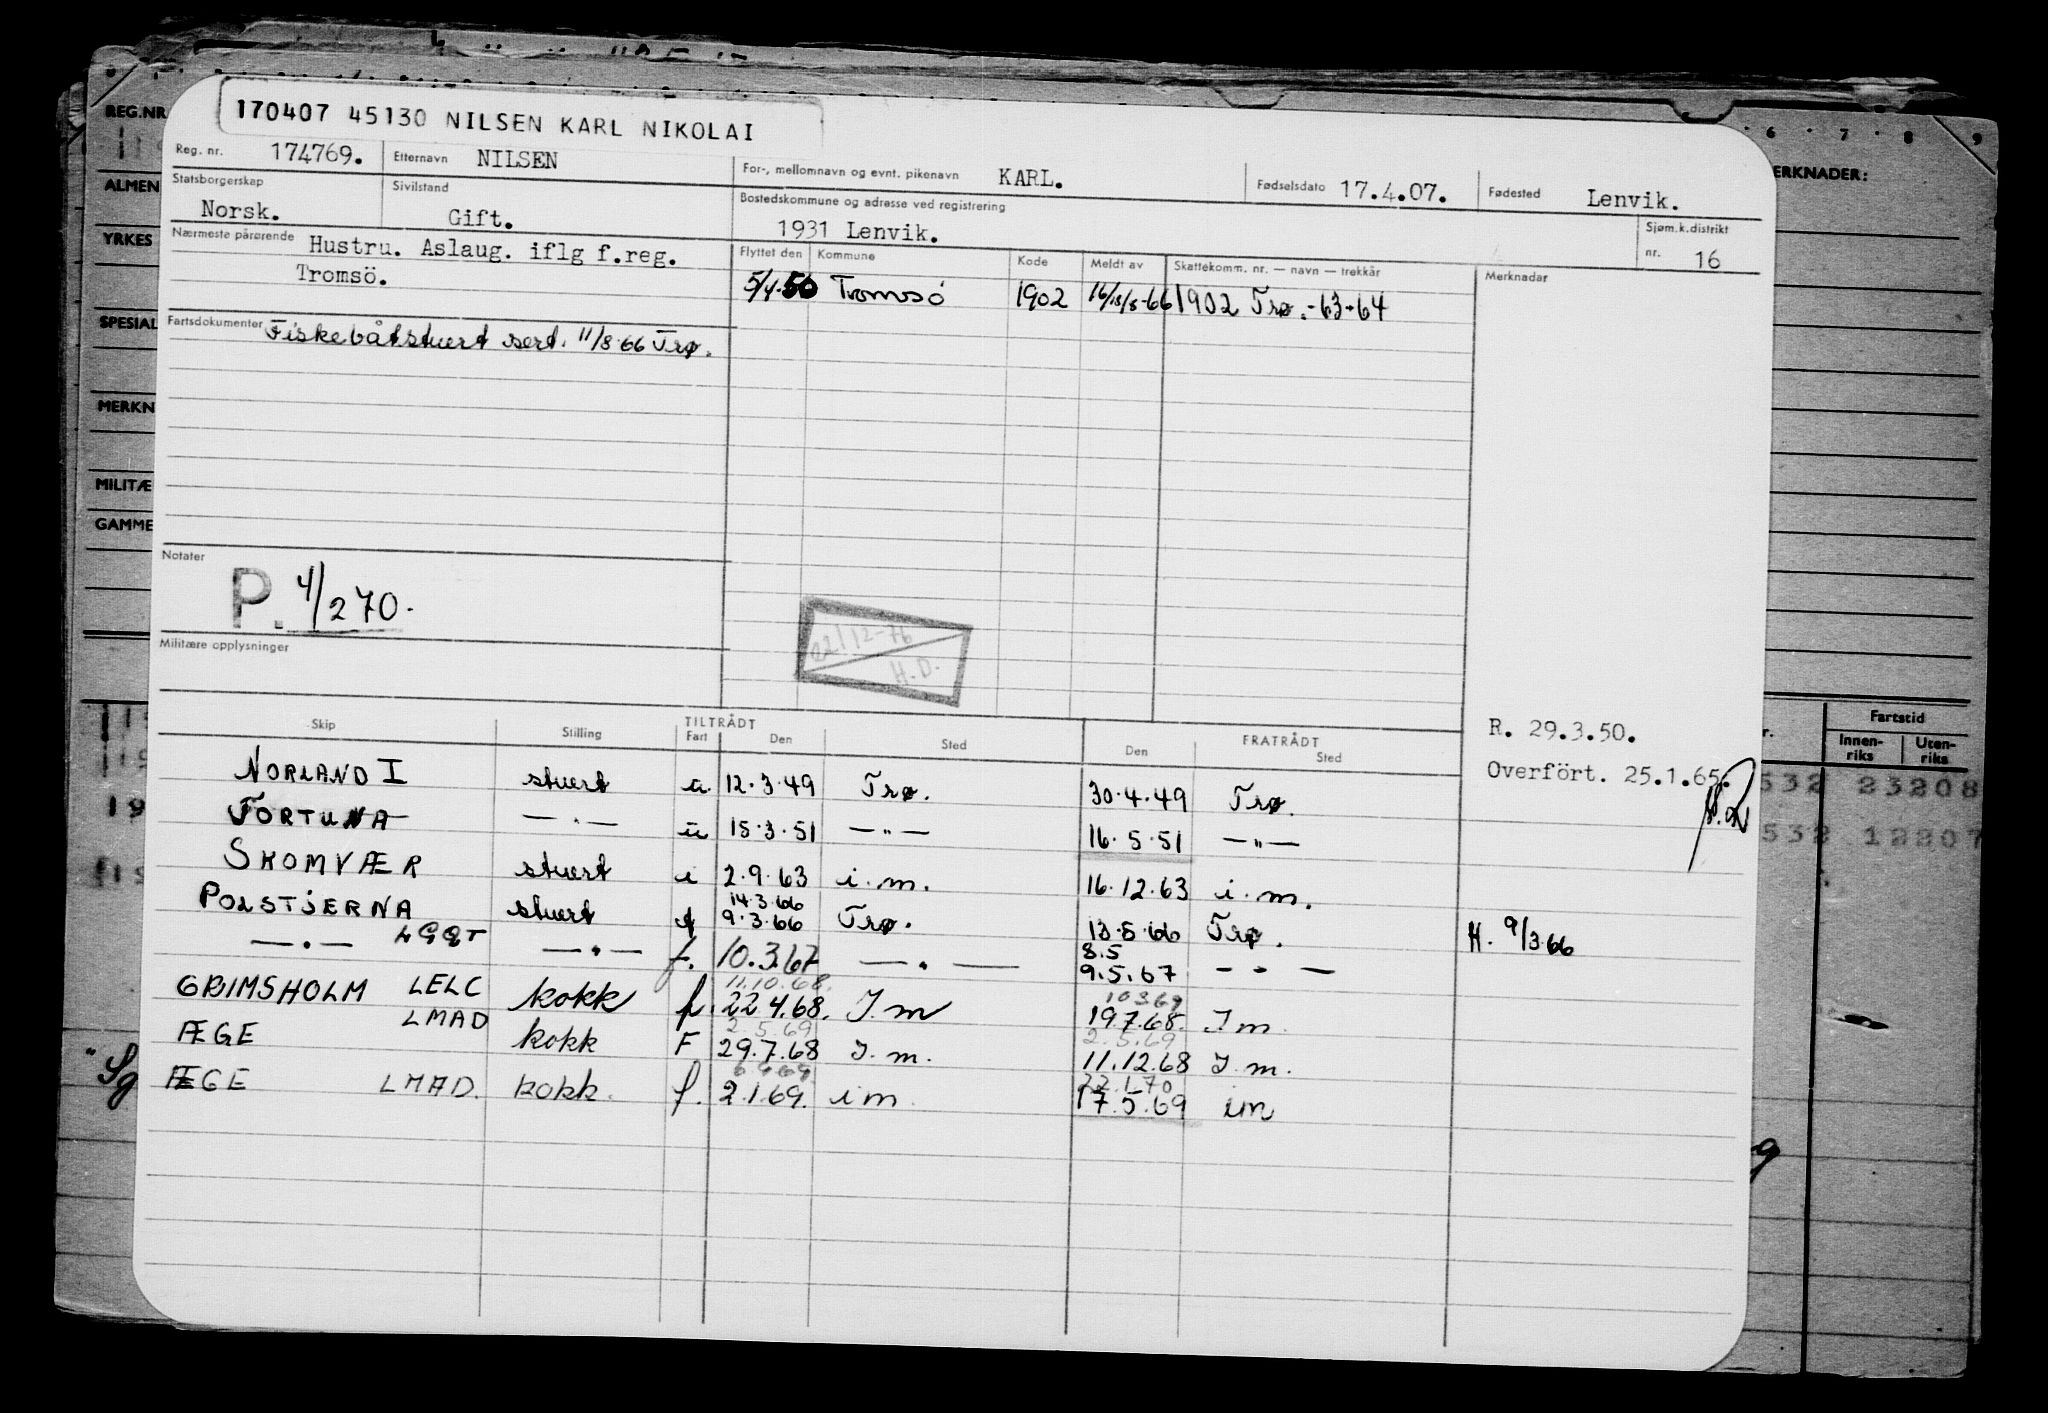 170407 45130 NILSEN KARL NIKOLAI
Reg. nr. 174769. Etternavn NILSEN For-, mellomnavn og evnt. pikenavn KARL. Fødselsdato 17.4.07. Fødested Lenvik.
Statsborgerskap Norsk. Sivilstand Gift. Bostedskommune og adresse ved registrering 1931 Lenvik. Sjøm.k.distrikt nr. 16
Nærmeste pårørende Hustru. Aslaug. iflg f.reg.
Tromsö.
Flyttet den Kommune Kode Meldt av Skattekomm. nr. — navn — trekkår Merknader
5/4.50 Tromsö 1902 1902 Trø.-63-64
Fartsdokumenter Fiskebåtstuert sert. 11/8.66 Trø.
Notater
P. 4/270.
22/12-76
H.D.
Militære opplysninger
R. 29.3.50.
Overfört. 25.1.65.
Skip Stilling TILTRÅDT Fart Den Sted FRATRÅDT Den Sted
NORLAND I stuert u. 12.3.49 Trø. 30.4.49 Trø.
FORTUNA — " — u 15.3.51 — " — 16.5.51 — " —
SKOMVÆR stuert i 2.9.63 i.m. 16.12.63 i.m.
14.3.66
POLSTJERNA stuert f 9.3.66 Trø. 13.5.66 Trø. H. 9/3.66
8.5
— " — LGQT — " — f. 10.3.67 — " — 9.5.67 — " —
11.10.68. 10369
GRIMSHOLM LELC kokk f. 22.4.68. I.m 19.7.68. I m.
2.5.69 2.5.69
ÆGE LMAD kokk F 29.7.68 I.m. 11.12.68 I.m.
6.9.69 22.1.70
ÆGE LMAD. kokk. f. 2.1.69. i m. 17.5.69 im
REG.NR.
ALMEN
YRKES
SPESIAL
MERKN
MILITÆ
GAMME
6 7 8 9
ERKNADER:
Fartstid
Innen-riks Uten-riks
532 23208
532 12207
"Sg